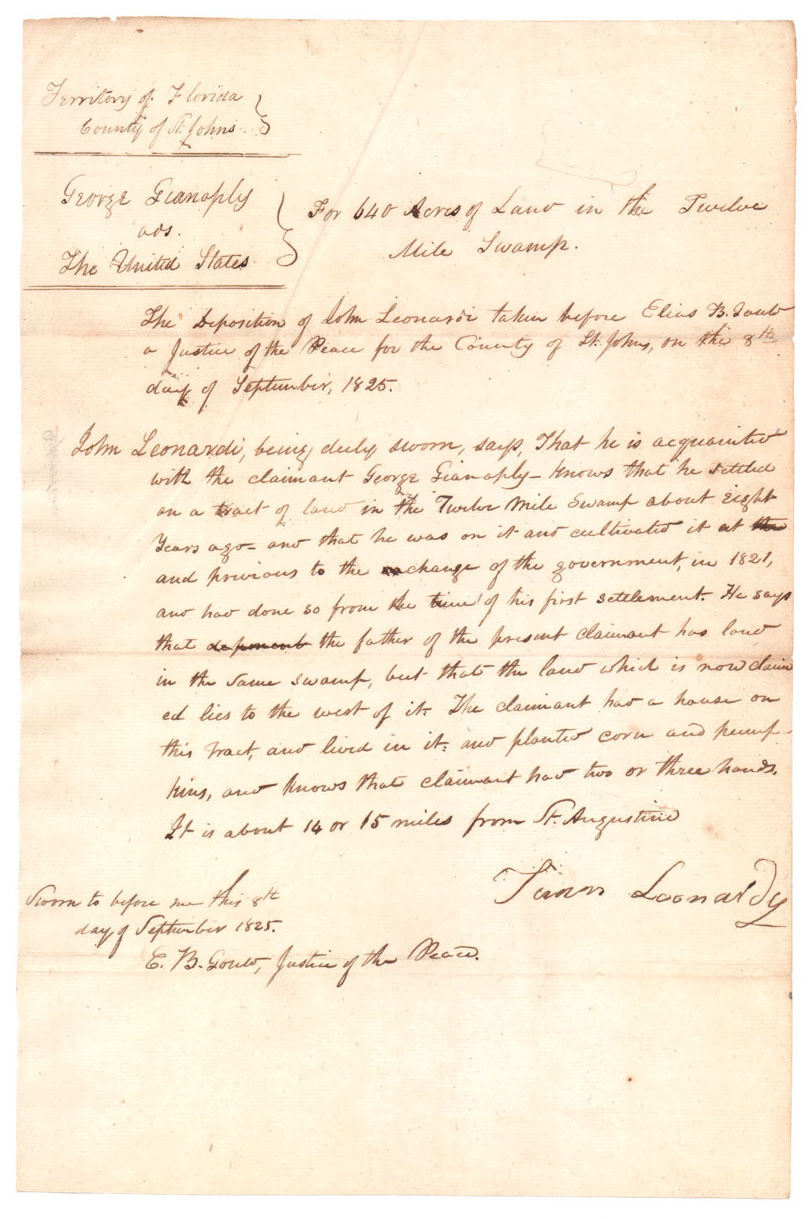 Territory of Florida
County of St. Johns
George Gianoply
ads.
The United States
For 640 Acres of Land in the Twelve
Mile Swamp.
The Deposition of John Leonardi taken before Elias B. Gould
a Justice of the Peace for the County of St. Johns, on the 8th
day of September, 1825.
John Leonardi, being duly sworn, says, That he is acquainted
with the claimant George Gianoply - knows that he settled
on a tract of land in the Twelve Mile Swamp about eight
Years ago - and that he was on it and cultivated it at the
and privious to the change of the government, in 1821,
and had done so from the time of his first settlement. He says
that deponent the father of the present claimant has land
in the same swamp, but that the land which is now claim
ed lies to the west of it. The claimant had a house on
this tract, and lived in it: and planted corn and pump-
kins, and knows that claimant had two or three hands.
It is about 14 or 15 miles from St. Augustine
Leonardy
Sworn to before me this 8th
day of September 1825.
E. B. Gould, Justice of the Peace.